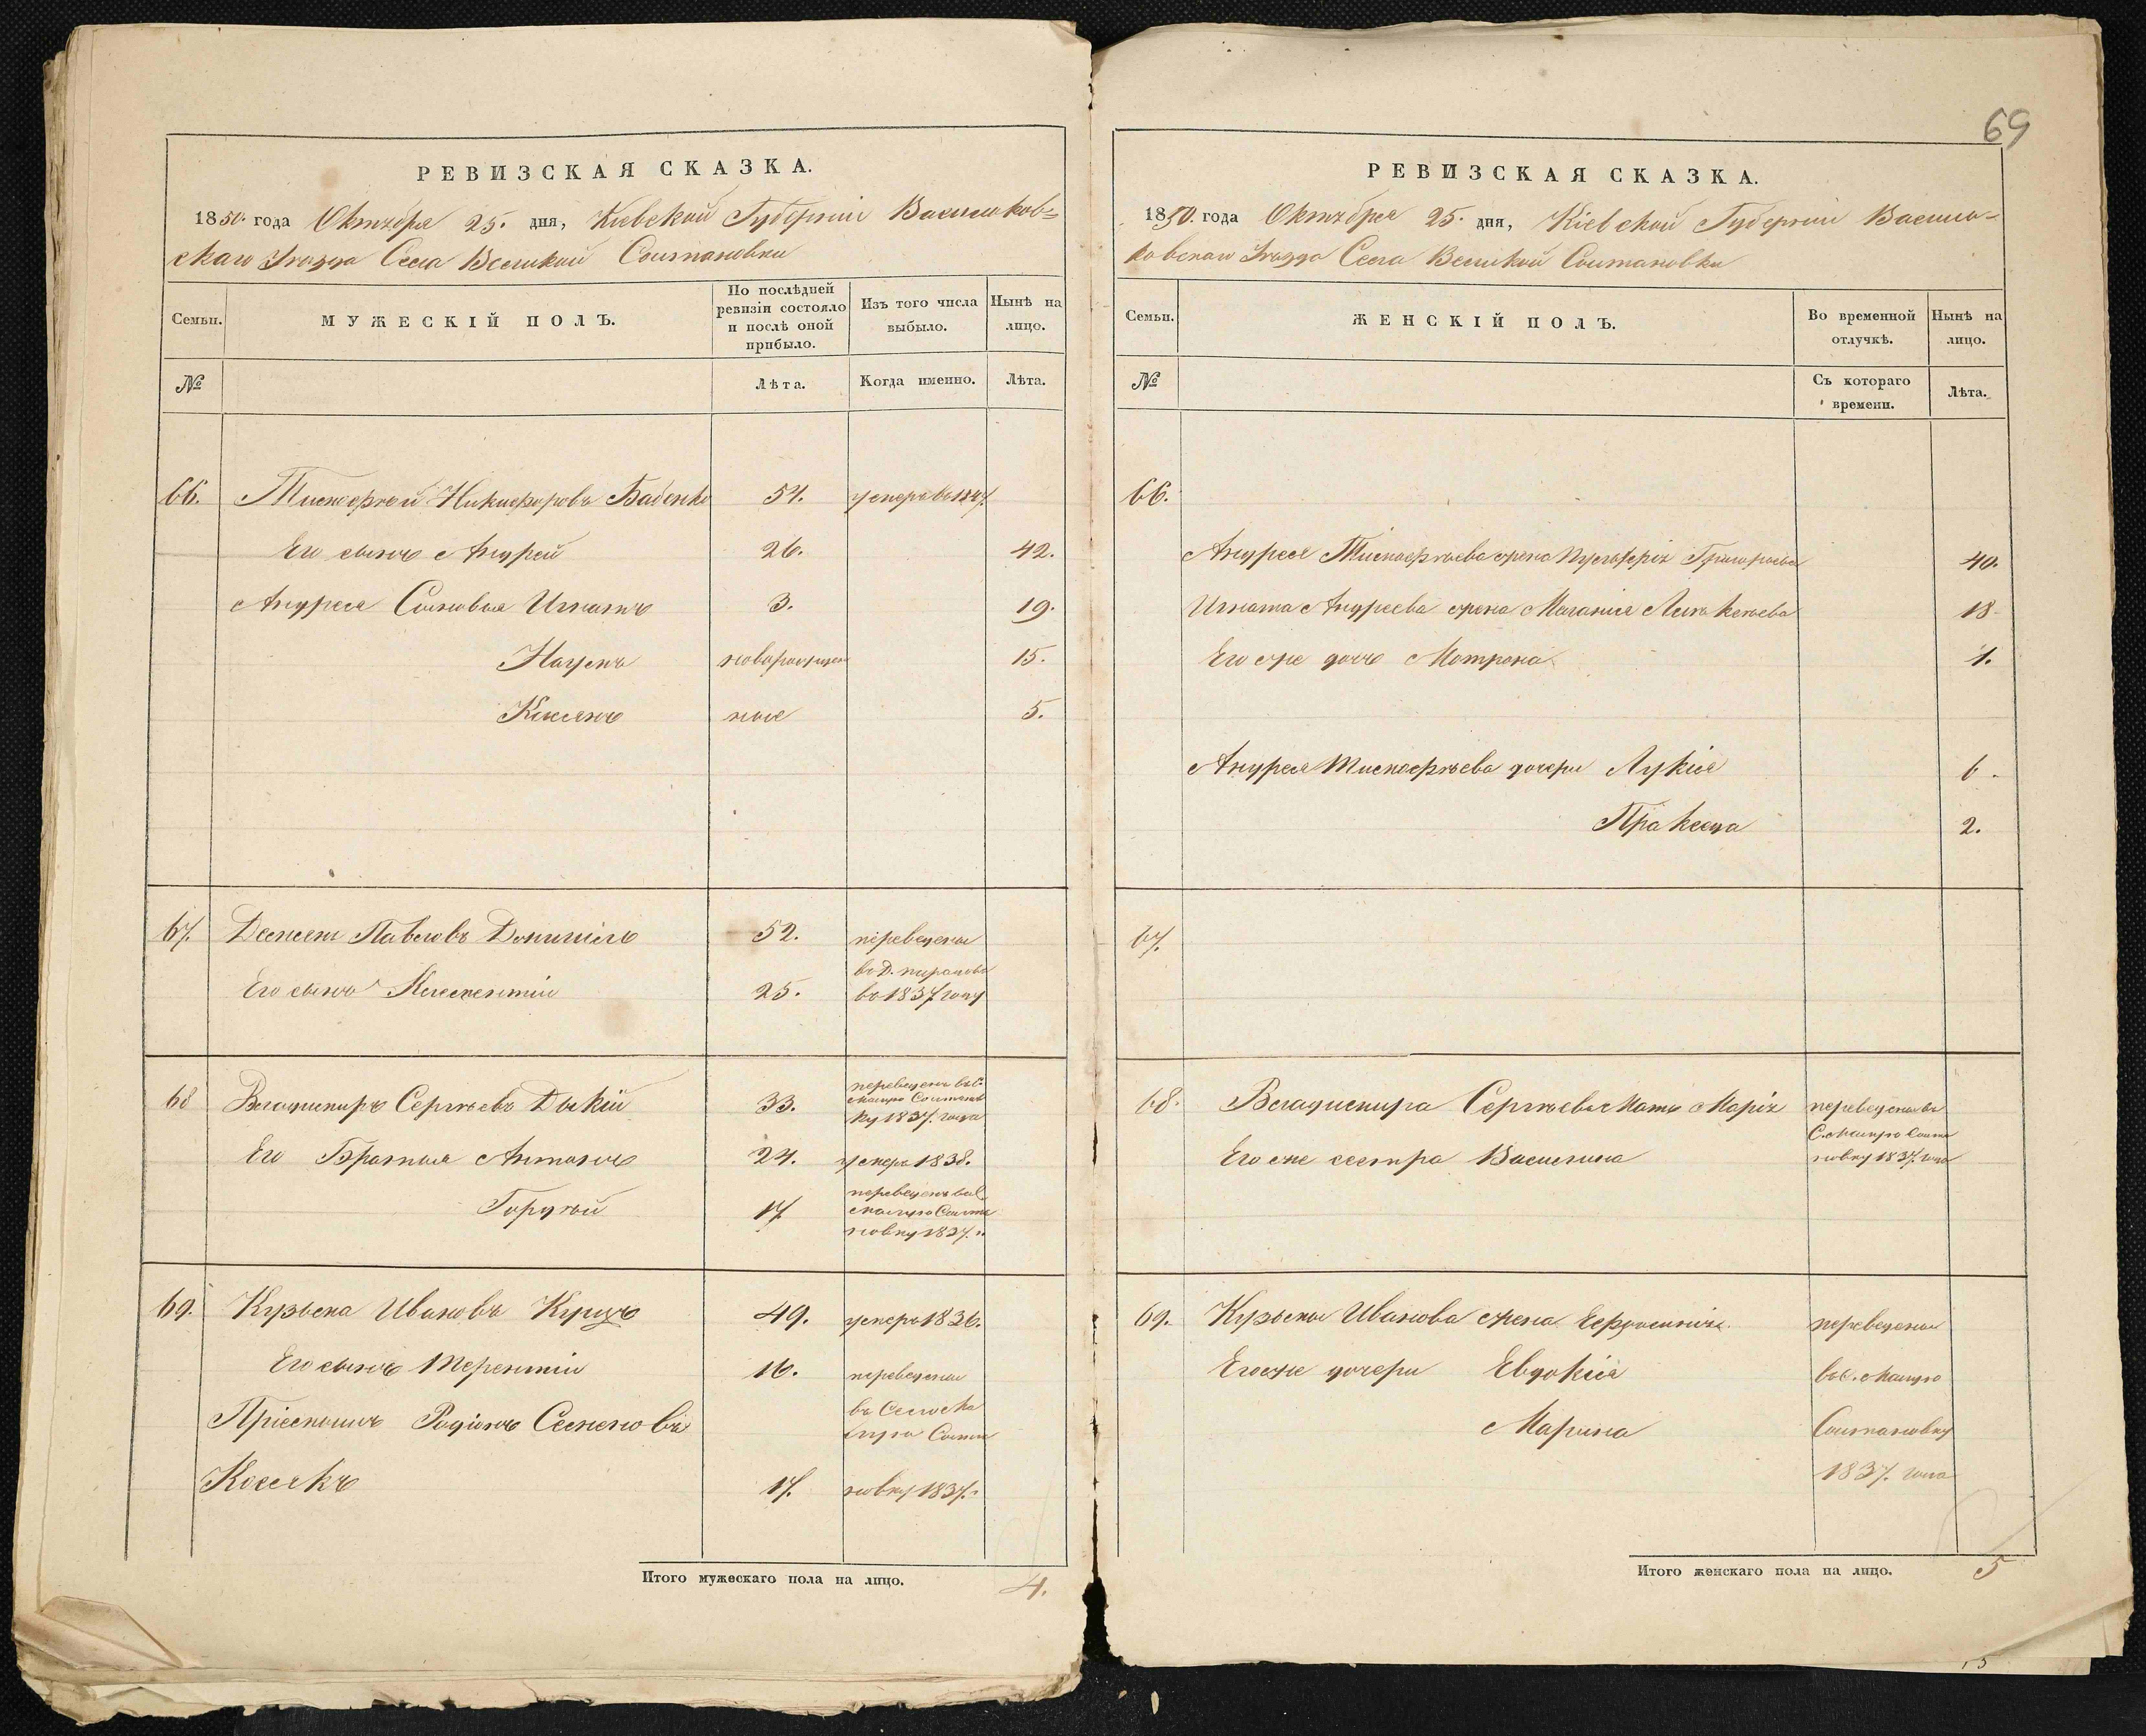 69
РЕВИЗСКАЯ СКАЗКА.
1850. года Октября 25. дня, Киевской Губернии Васильков=
скаго Уѣзда Села Великой Солтановки
Семьи.
МУЖЕСКІЙ ПОЛЪ.
По послѣдней ревизіи состояло и послѣ оной прибыло.
Изъ того числа выбыло.
Нынѣ на лицо.
№
Лѣта.
Когда именно.
Лѣта.
66. Тимофѣй Никифоровъ Бабенко 54. умеръ въ 1847.
Его сынъ Андрей 26. 42.
Андрея Сыновья Игнатъ 3. 19.
Наумъ новорожден 15.
Касіянъ ные 5.
67. Павловъ 52. переведены
въ Д.
Его сынъ 25. въ 1837 году
68 Владимиръ Сергѣевъ Дыкій 33. переведенъ въ С.
Малую Солтанов
ку 1837. года
Его Братья Антонъ 24. умеръ 1838.
Гордѣй 17 переведенъ въ С.
Малую Солта
новку 1837. г.
69. Кузьма Ивановъ 49. умеръ 1836.
Его сынъ Терентій 16. переведены
Пріемышъ Родіонъ Семеновъ въ Село Ма
лую Солта
17. новку 1837. г.
Итого мужескаго пола на лицо. 4.
РЕВИЗСКАЯ СКАЗКА.
1850. года Октября 25. дня, Кіевской Губерніи Василь=
ковскаго Уѣзда Села Великой Солтановки
Семьи.
ЖЕНСКІЙ ПОЛЪ.
Во временной отлучкѣ.
Нынѣ на лицо.
№
Съ котораго времени.
Лѣта.
66.
Андрея Тимофѣева жена Григорьева 40.
Игната Андреева жена Маланья 18
Его же дочь Мотрона 1.
Андрея Тимофѣева дочери Лукія 6.
Пракседа 2.
67.
68. Владимира Сергѣева Мать Марія переведены въ
С. Малую Солта
Его же сестра Василина новку 1837. года
69. Кузьмы Иванова жена Ефросинія переведены
Его же дочери Евдокія въ С. Малую
Марина Солтановку
1837. года
Итого женскаго пола на лицо. 5